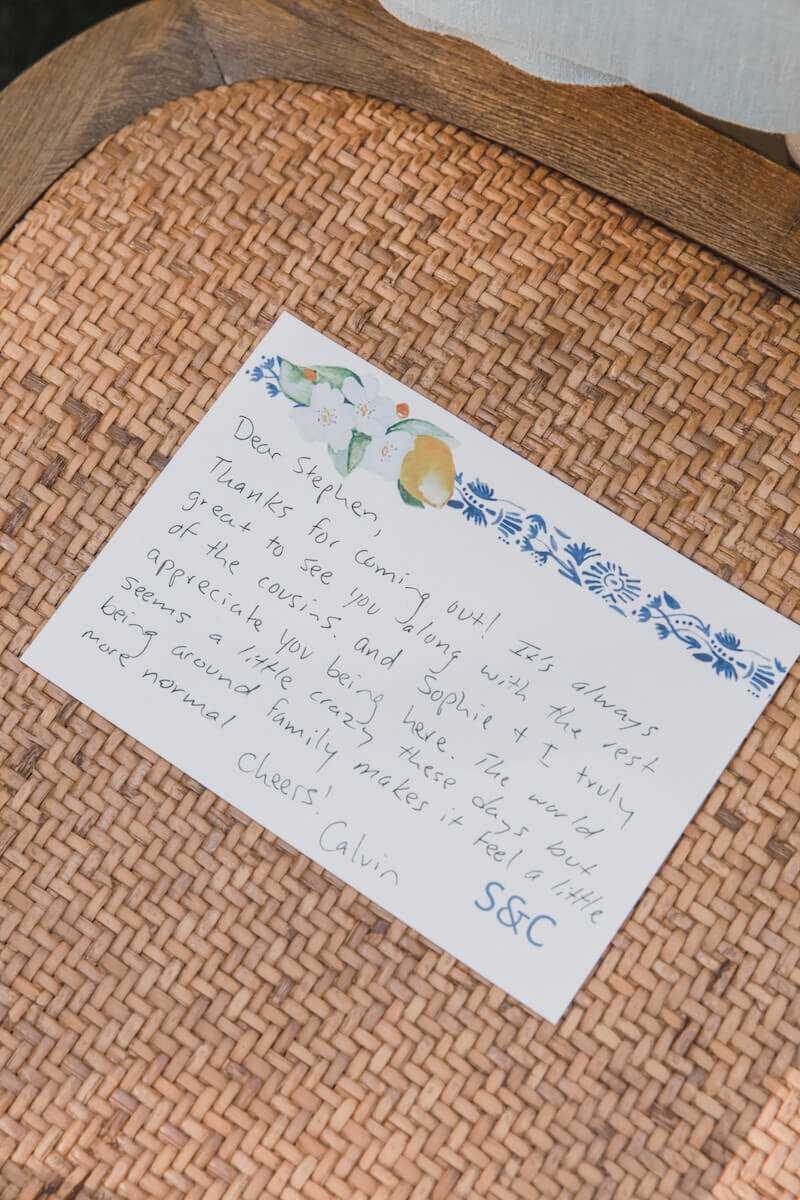 Dear Stephen,
Thanks for coming out! It's always
great to see you along with the rest
of the cousins. and Sophie & I truly
appreciate you being here. The world
seems a little crazy these days but
being around family makes it feel a little
more normal
Cheers!
Calvin
S&C